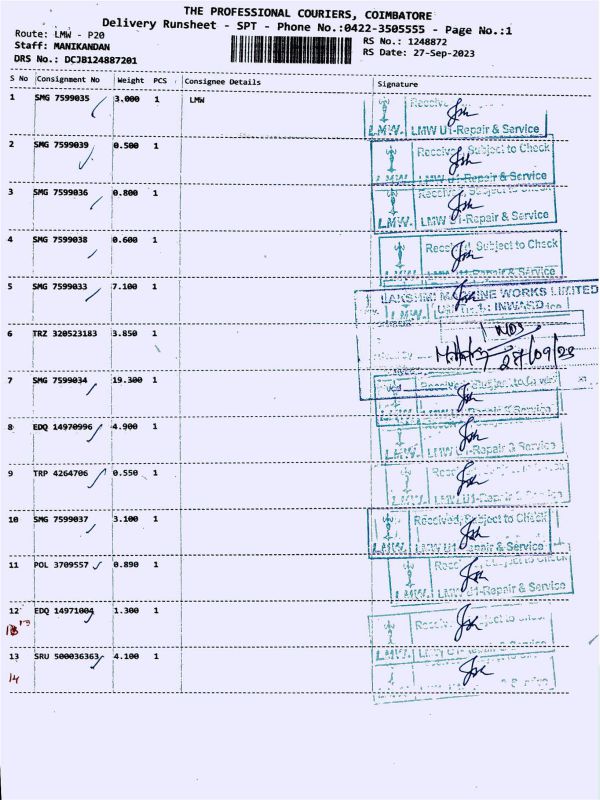 THE PROFESSIONAL COURIERS, COIMBATORE
Delivery Runsheet - SPT - Phone No.:0422-3505555 - Page No.:1
Route: LMW - P20
RS No.: 1248872
Staff: MANIKANDAN
RS Date: 27-Sep-2023
DRS No.: DCJB124887201
S No Consignment No Weight PCS Consignee Details Signature
1 SMG 7599035 3.000 1 LMW
LMW. LMW U1-Repair & Service
2 SMG 7599039 0.500 1
Received, Subject to Check
LMW U1-Repair & Service
3 SMG 7599036 0.800 1
LMW. LMW U1-Repair & Service
4 SMG 7599038 0.600 1
Received, Subject to Check
LMW U1-Repair & Service
5 SMG 7599033 7.100 1
LAKSHMI MACHINE WORKS LIMITED
INWARD
6 TRZ 320523183 3.850 1
27/09/23
7 SMG 7599034 19.300 1
LMW U1-Repair & Service
8 EDQ 14970996 4.900 1
LMW. U1-Repair & Service
9 TRP 4264706 0.550 1
LMW U1-Repair & Service
10 SMG 7599037 3.100 1
Received, Subject to Check
LMW. LMW U1-Repair & Service
11 POL 3709557 0.890 1
LMW. LMW U1-Repair & Service
12 EDQ 14971004 1.300 1
13
13 SRU 500036363 4.100 1
14